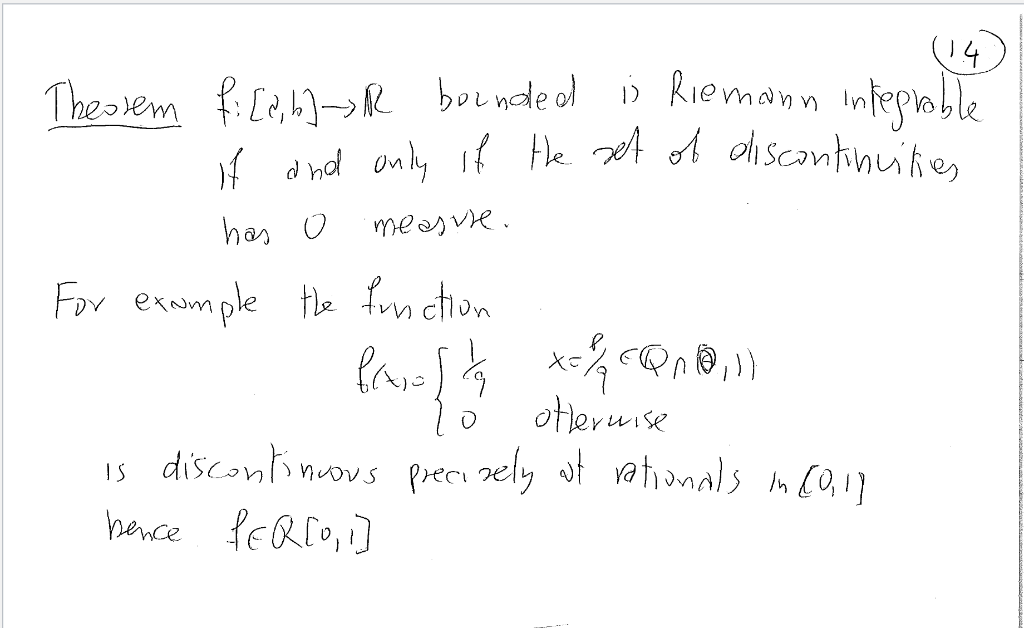 14
Theorem f: [a,b] → ℝ bounded is Riemann integrable
if and only if the set of discontinuities
has 0 measure.
For example the function
f(x) = { 1/q x = p/q ∈ Q ∩ 0,1)
0 otherwise
is discontinuous precisely at rationals in [0,1]
hence f ∈ R[0,1]